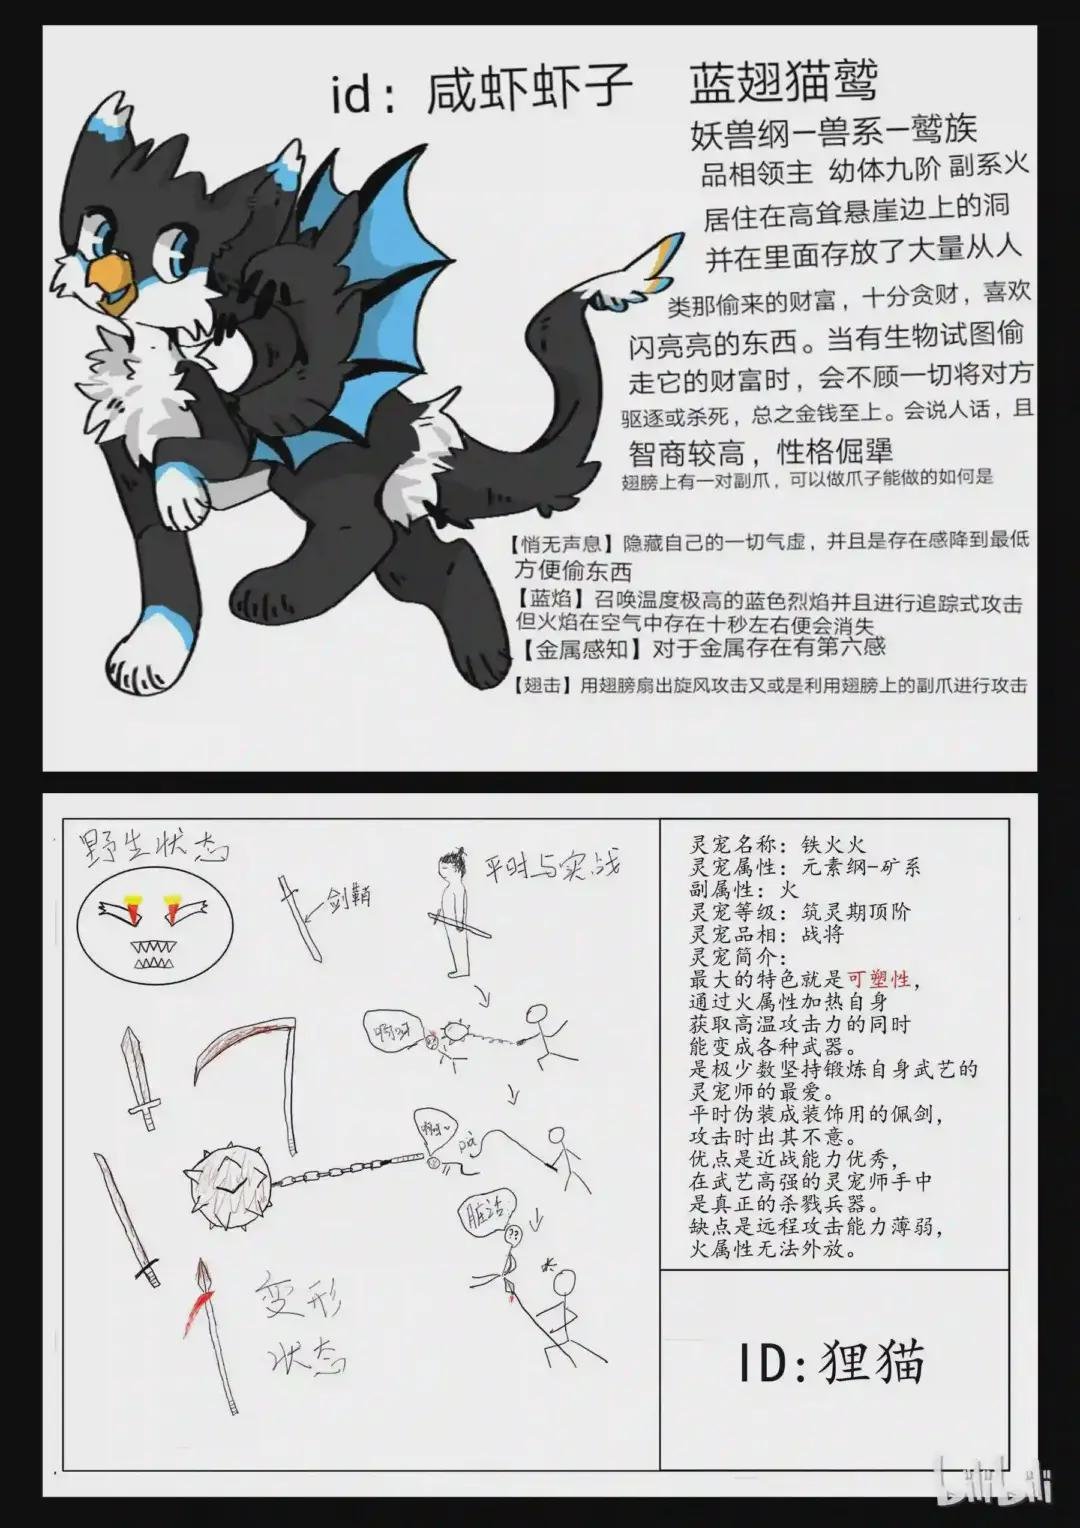 id：咸虾虾子
蓝翅猫鹫
妖兽纲－兽系－鹫族
品相领主 幼体九阶 副系火
居住在高耸悬崖边上的洞
并在里面存放了大量从人
类那偷来的财富，十分贪财，喜欢
闪亮亮的东西。当有生物试图偷
走它的财富时，会不顾一切将对方
驱逐或杀死，总之金钱至上。会说人话，且
智商较高，性格倔犟
翅膀上有一对副爪，可以做爪子能做的如何是
【悄无声息】隐藏自己的一切气虚，并且是存在感降到最低
方便偷东西
【蓝焰】召唤温度极高的蓝色烈焰并且进行追踪式攻击
但火焰在空气中存在十秒左右便会消失
【金属感知】对于金属存在有第六感
【翅击】用翅膀扇出旋风攻击又或是利用翅膀上的副爪进行攻击
野生状态
剑鞘
平时与实战
啊呀
脏话
??
变形
状态
灵宠名称：铁火火
灵宠属性：元素纲-矿系
副属性：火
灵宠等级：筑灵期顶阶
灵宠品相：战将
灵宠简介：
最大的特色就是可塑性，
通过火属性加热自身
获取高温攻击力的同时
能变成各种武器。
是极少数坚持锻炼自身武艺的
灵宠师的最爱。
平时伪装成装饰用的佩剑，
攻击时出其不意。
优点是近战能力优秀，
在武艺高强的灵宠师手中
是真正的杀戮兵器。
缺点是远程攻击能力薄弱，
火属性无法外放。
ID:狸猫
bilibili